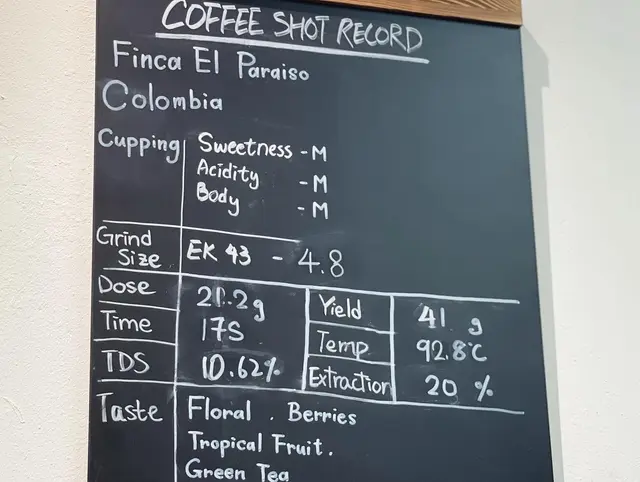 COFFEE SHOT RECORD
Finca El Paraiso
Colombia
Cupping
Sweetness - M
Acidity - M
Body - M
Grind Size
EK 43 - 4.8
Dose
Yield 41 g
Time 17S
Temp 92.8°C
TDS 10.62%
Extraction 20 %
Taste
Floral . Berries
Tropical Fruit.
Green Tea